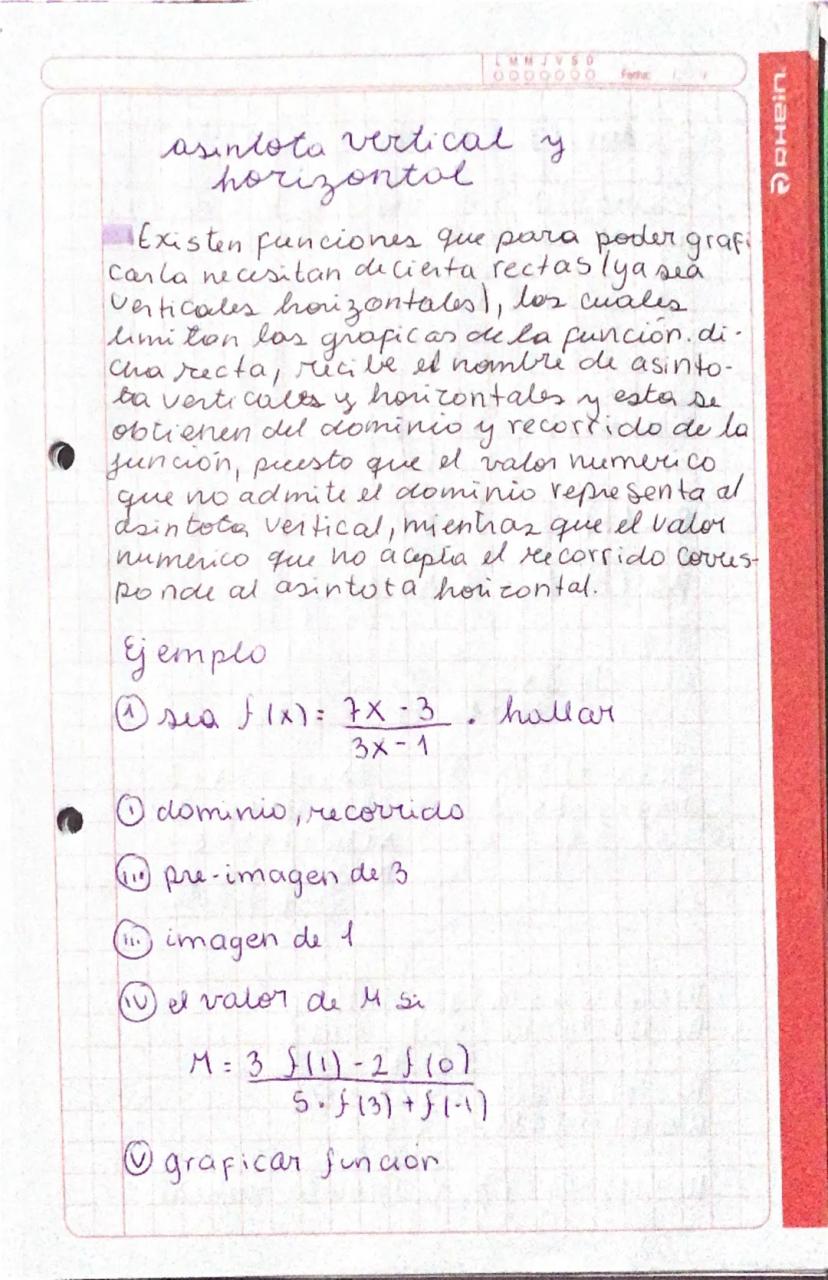 L M M J V S D
Fecha:
asintota vertical y
horizontal
Existen funciones que para poder grafi
carla necesitan de cierta rectas (ya sea
verticales horizontales), los cuales
limitan las graficas de la función. di-
cha recta, recibe el nombre de asinto-
ta verticales y horizontales y esta se
obtienen del dominio y recorrido de la
función, puesto que el valor numerico
que no admite el dominio representa al
asintota vertical, mientras que el valor
numerico que no acepta el recorrido corres-
ponde al asintota horizontal.
Ejemplo
① sea f(x) = 7x - 3 / 3x - 1 . hallar
Ⓘ dominio, recorrido
(iii) pre-imagen de 3
(ii.) imagen de 1
(IV) el valor de M si
M = 3 f(1) - 2 f(0) / 5 · f(3) + f(-1)
Ⓥ graficar función